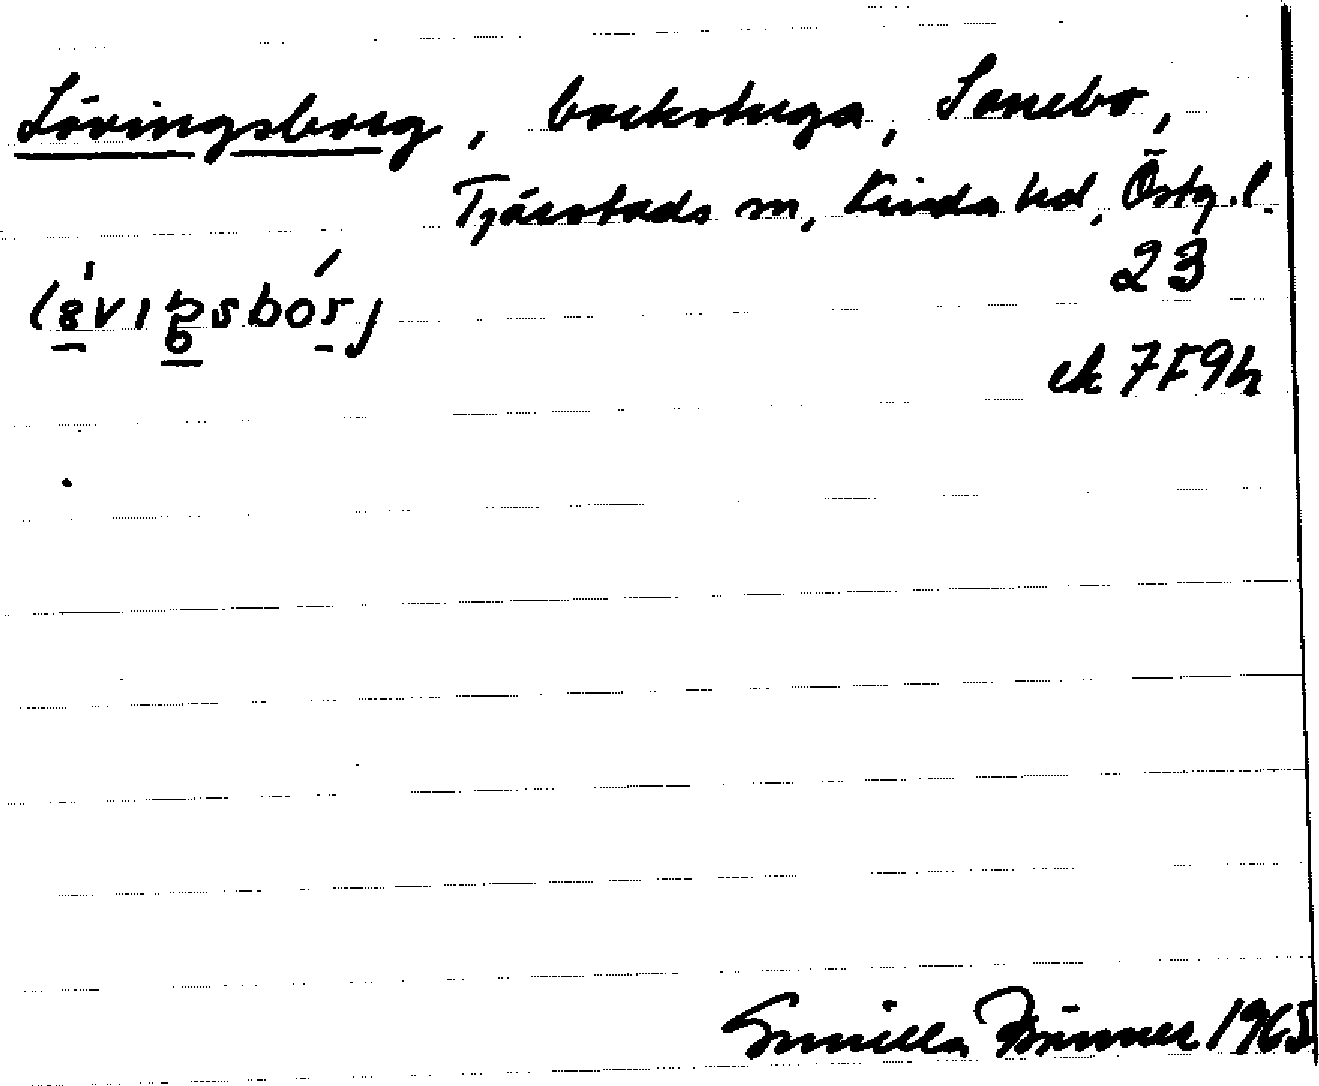 Lövingsborg, backstuga, Sonebo,
Tjärstads sn, Kinda hd, Östg.l.
23
ek 7F9h
Gunilla 1965